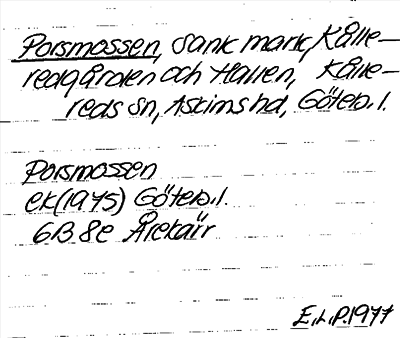 Porsmossen, sank mark, Kålle-
redgården och Hallen, Kålle-
reds sn, Askims hd, Göteb.l.
Porsmossen
ek(1975) Göteb.l.
6B 8e Årekärr
E.L.P.1977